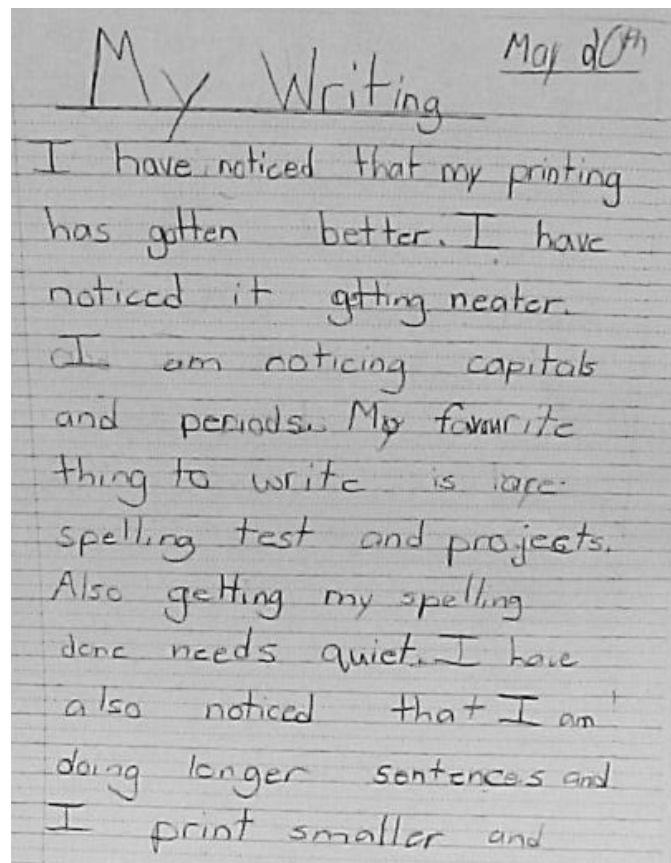 May 20th
My Writing
I have noticed that my printing
has gotten better. I have
noticed it getting neater.
I am noticing capitals
and periods. My favourite
thing to write is
spelling test and projects.
Also getting my spelling
done needs quiet. I have
also noticed that I am
doing longer sentences and
I print smaller and